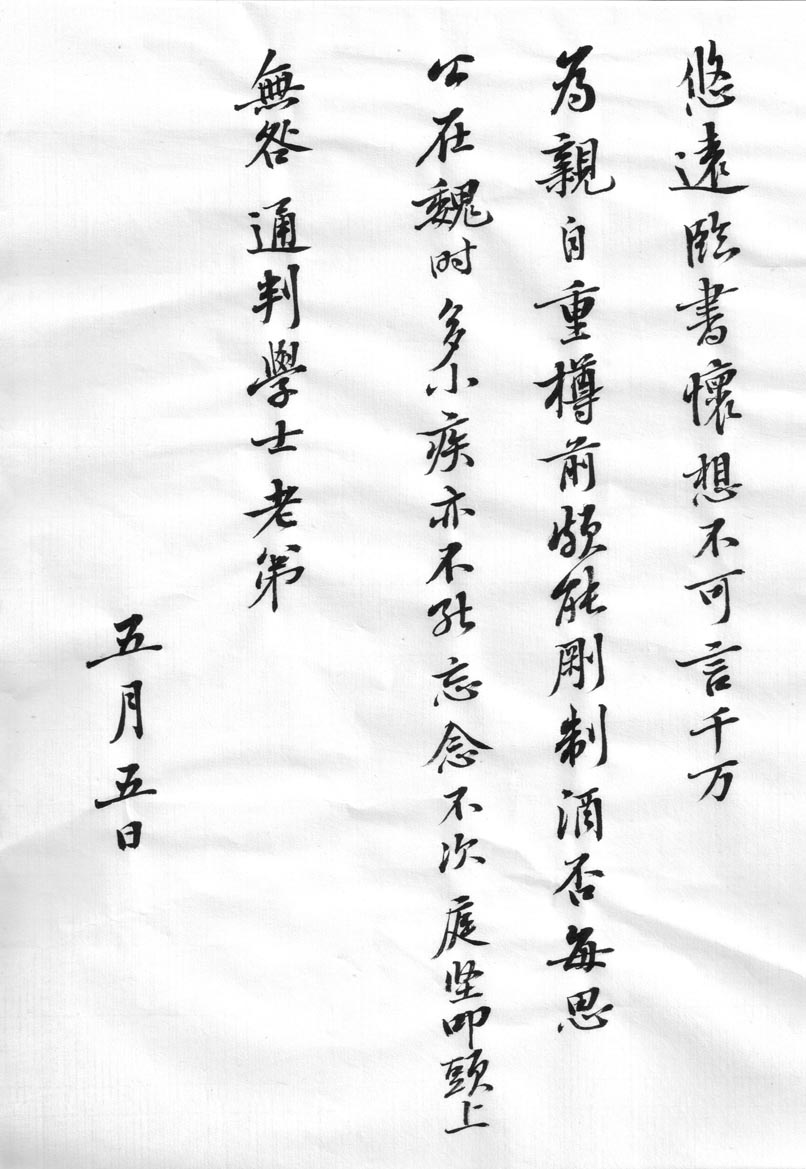 悠遠臨書懷想不可言千万
為親自重樽前頗能剛制酒否每思
公在魏时多小疾亦不能忘念不次 庭坚叩頭上
無咎 通判學士老弟
五月五日